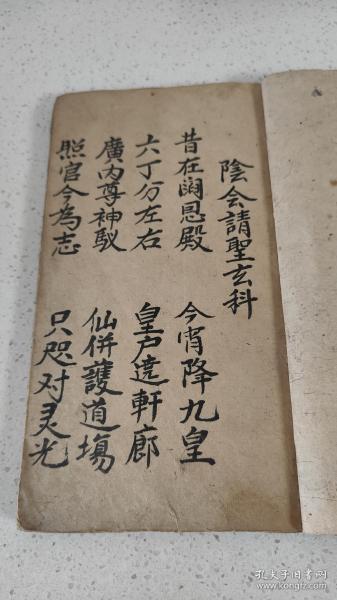 陰会請聖玄科
昔在阔恩殿 今宵降九皇
六丁分左右 皇户遶軒廊
廣内尊神馭 仙併護道塲
照官今為志 只咫对灵光
孔夫子旧书网